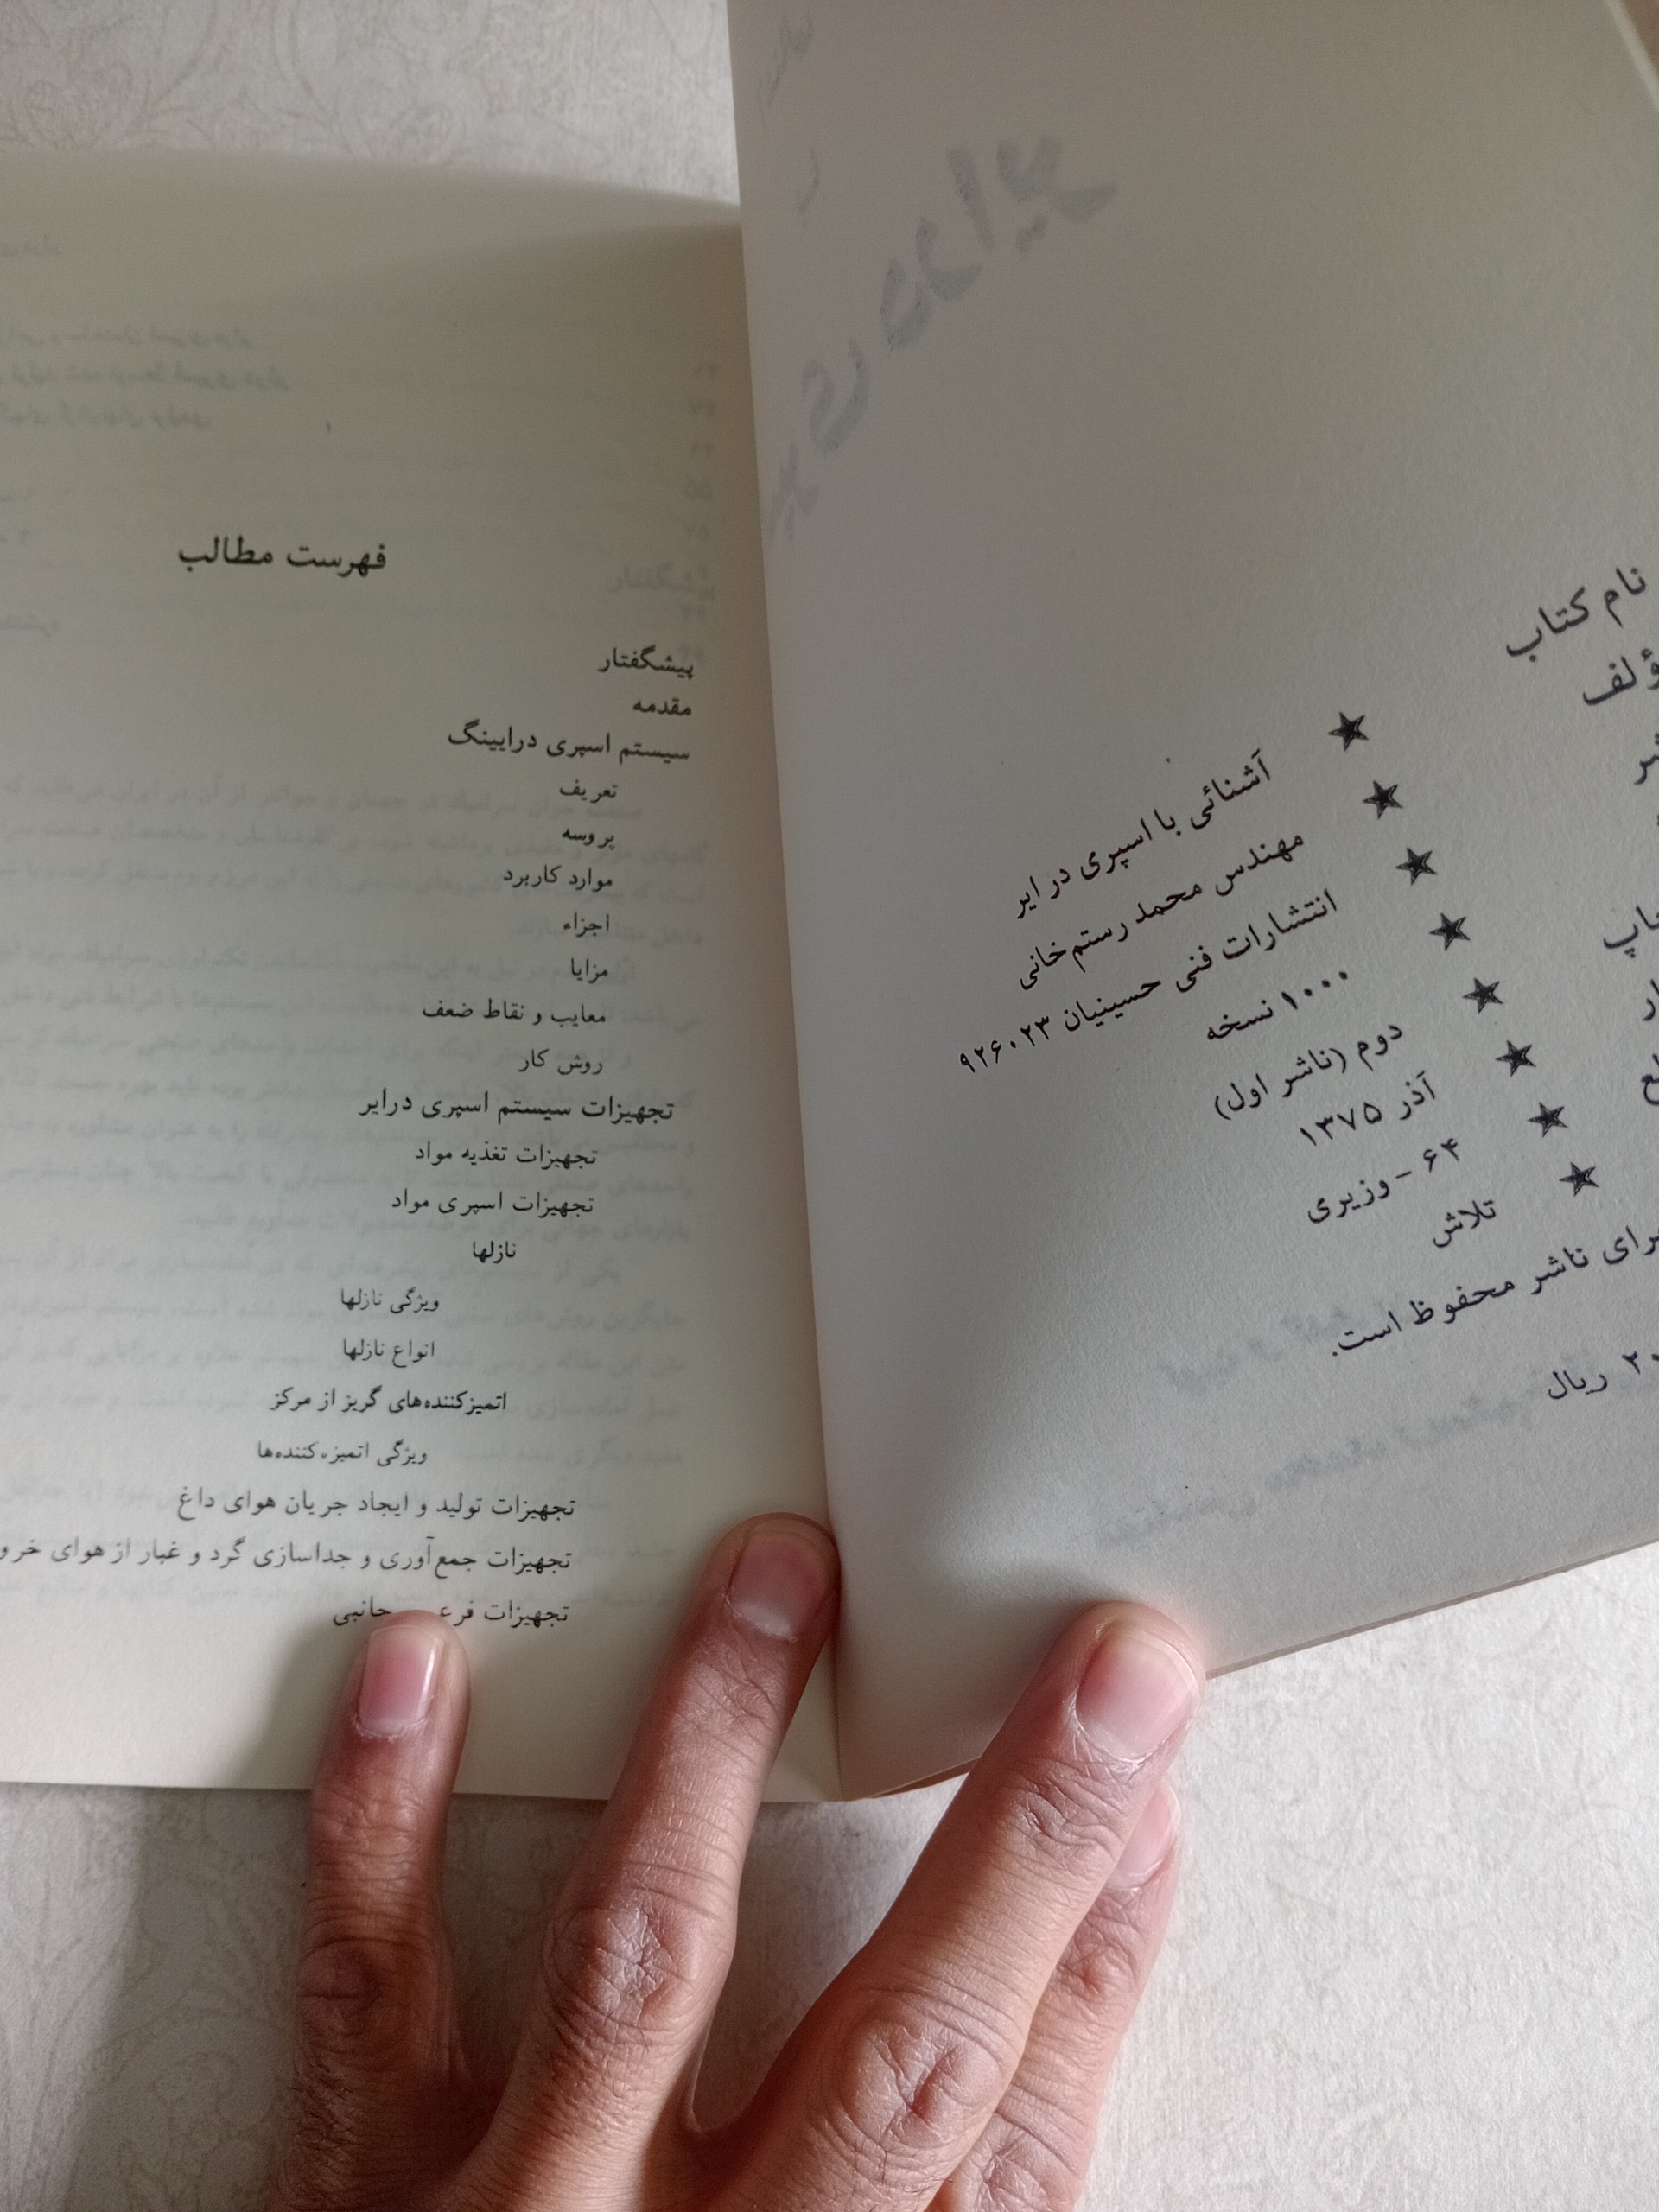 نام کتاب
★ آشنائی با اسپری درایر
★ مهندس محمد رستم‌خانی
★ انتشارات فنی حسینیان ۹۲۶۰۲۳
★ ۱۰۰۰ نسخه
★ دوم (ناشر اول)
★ آذر ۱۳۷۵
★ ۶۴ - وزیری
★ تلاش
برای ناشر محفوظ است.
ریال
فهرست مطالب
پیشگفتار
مقدمه
سیستم اسپری درایینگ
تعریف
پروسه
موارد کاربرد
اجزاء
مزایا
معایب و نقاط ضعف
روش کار
تجهیزات سیستم اسپری درایر
تجهیزات تغذیه مواد
تجهیزات اسپری مواد
نازلها
ویژگی نازلها
انواع نازلها
اتمیزکننده‌های گریز از مرکز
ویژگی اتمیزه‌کننده‌ها
تجهیزات تولید و ایجاد جریان هوای داغ
تجهیزات جمع‌آوری و جداسازی گرد و غبار از هوای
تجهیزات جانبی